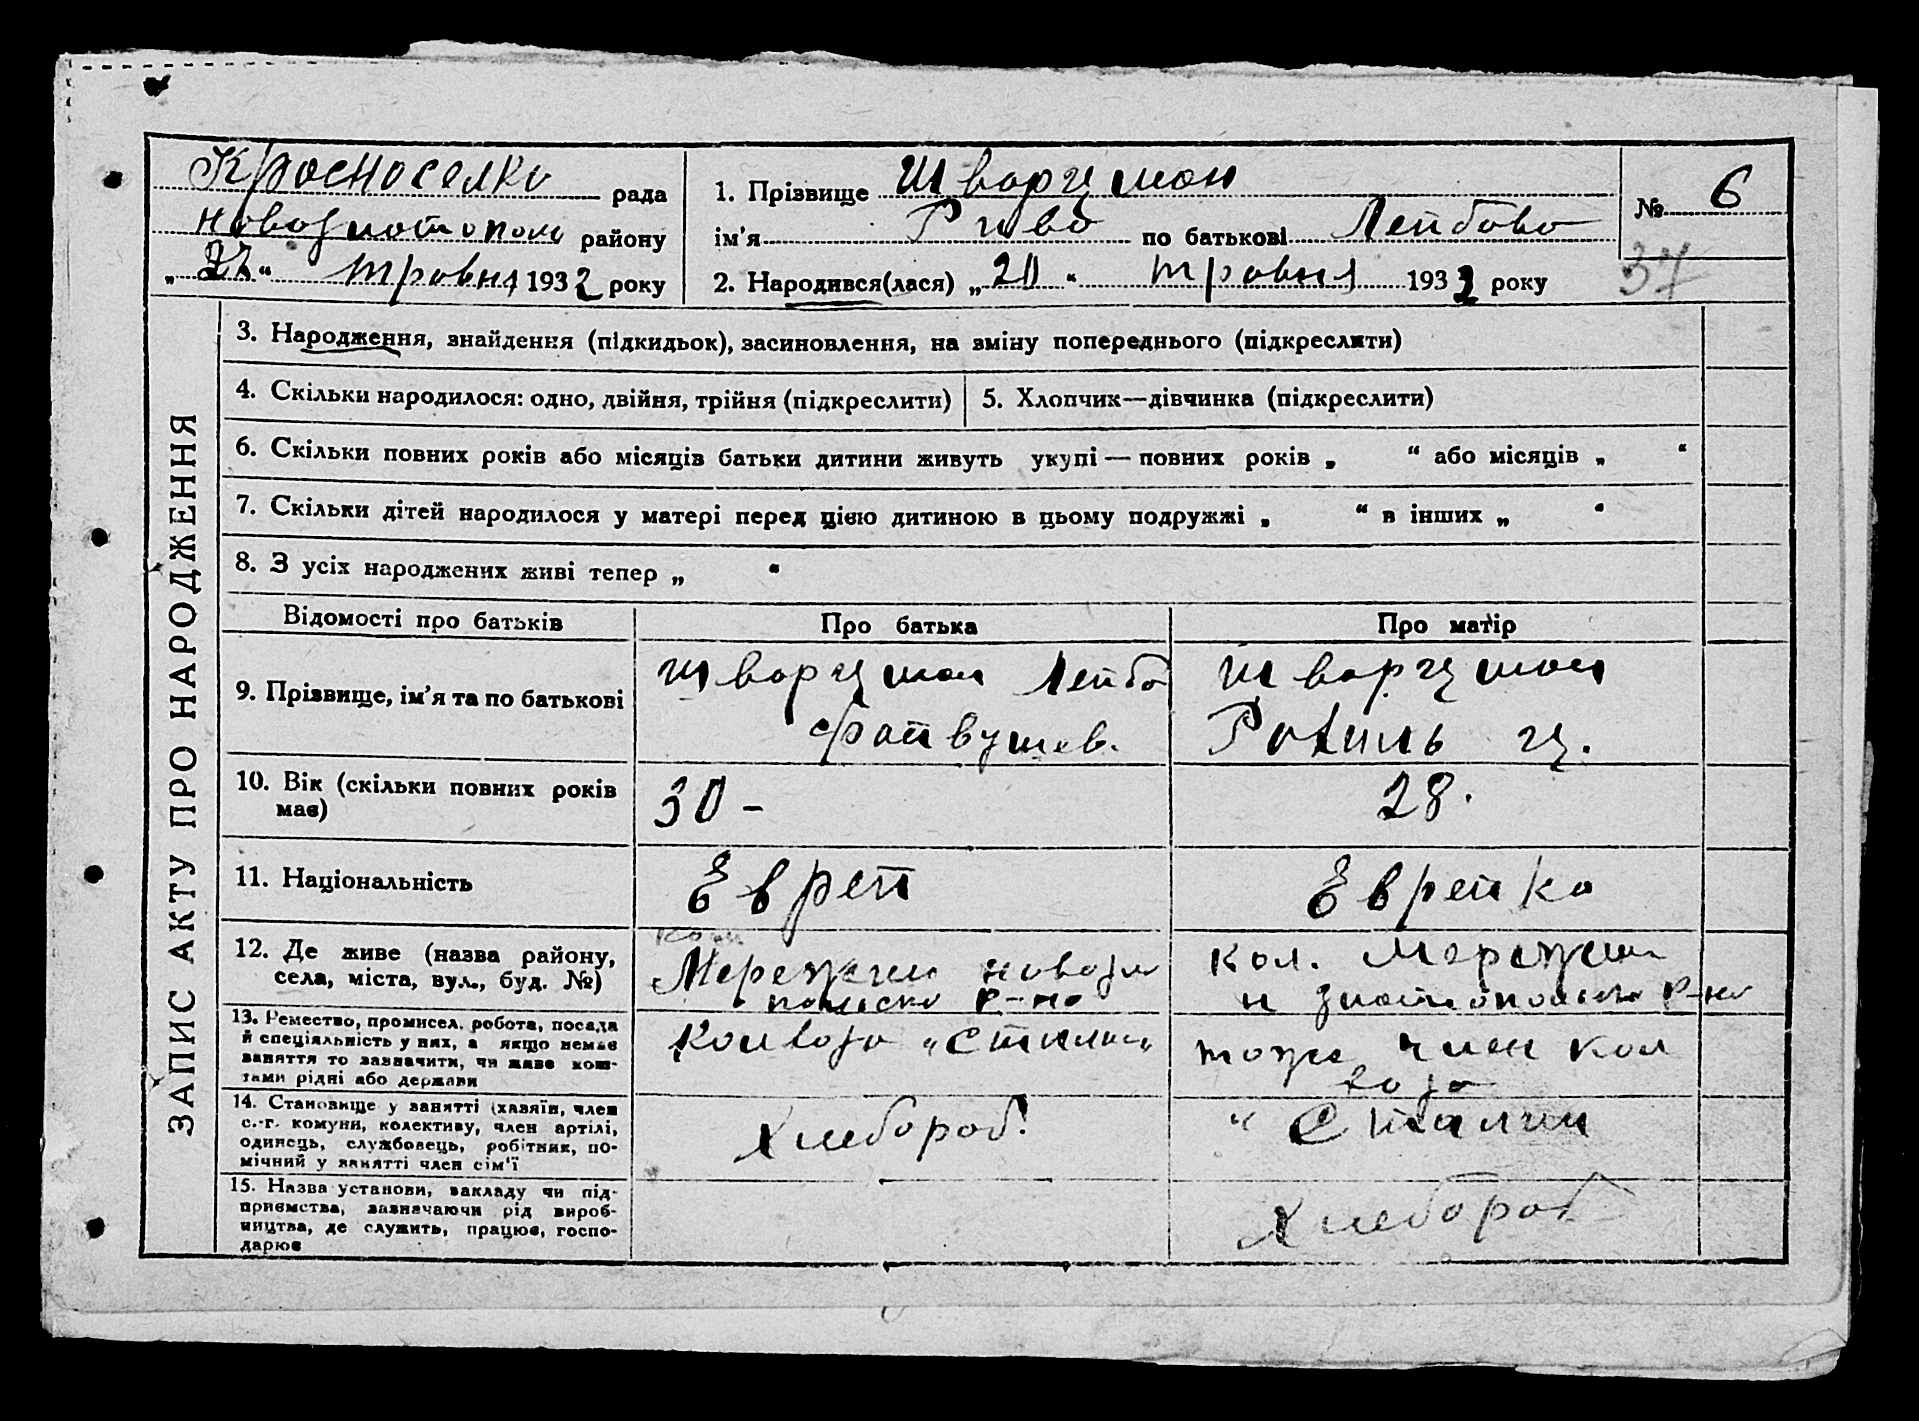 Красноселка рада
Новозлатополь району
„ 22 “ травня 1932 року
1. Прізвище Шварцман
ім'я Рива по батькові Лейбова
2. Народився(лася) „ 20 “ травня 1932 року
№ 6
37
ЗАПИС АКТУ ПРО НАРОДЖЕННЯ
3. Народження, знайдення (підкидьок), засиновлення, на зміну попереднього (підкреслити)
4. Скільки народилося: одно, двійня, трійня (підкреслити)
5. Хлопчик—дівчинка (підкреслити)
6. Скільки повних років або місяців батьки дитини живуть укупі — повних років „ “ або місяців „ “
7. Скільки дітей народилося у матері перед цією дитиною в цьому подружжі „ “ в інших „ “
8. З усіх народжених живі тепер „ “
Відомості про батьків
Про батька
Про матір
9. Прізвище, ім'я та по батькові
Шварцман Лейба
Файвушев.
Шварцман
Рахиль Гц.
10. Вік (скільки повних років
має)
30 –
28.
11. Національність
Еврей
Еврейка
12. Де живе (назва району,
села, міста, вул., буд. №)
Мережин новозла
польско р-на
кол. Мережин
н златопольско р-на
13. Ремество, промисел, робота, посада
й спеціяльність у них, а якщо немає
заняття то зазначити, чи живе кош-
тами рідні або держави
Колхоза „Сталин“
тоже член кол
хоза
14. Становище у занятті (хазяїн, член
с.-г. комуни, колективу, член артілі,
одинець, службовець, робітник, по-
мічний у занятті член сім'ї
Хлебороб.
“ Сталин
15. Назва установи, закладу чи під-
приємства, зазначаючи рід вироб-
ництва, де служить, працює, госпо-
дарює
Хлебороб